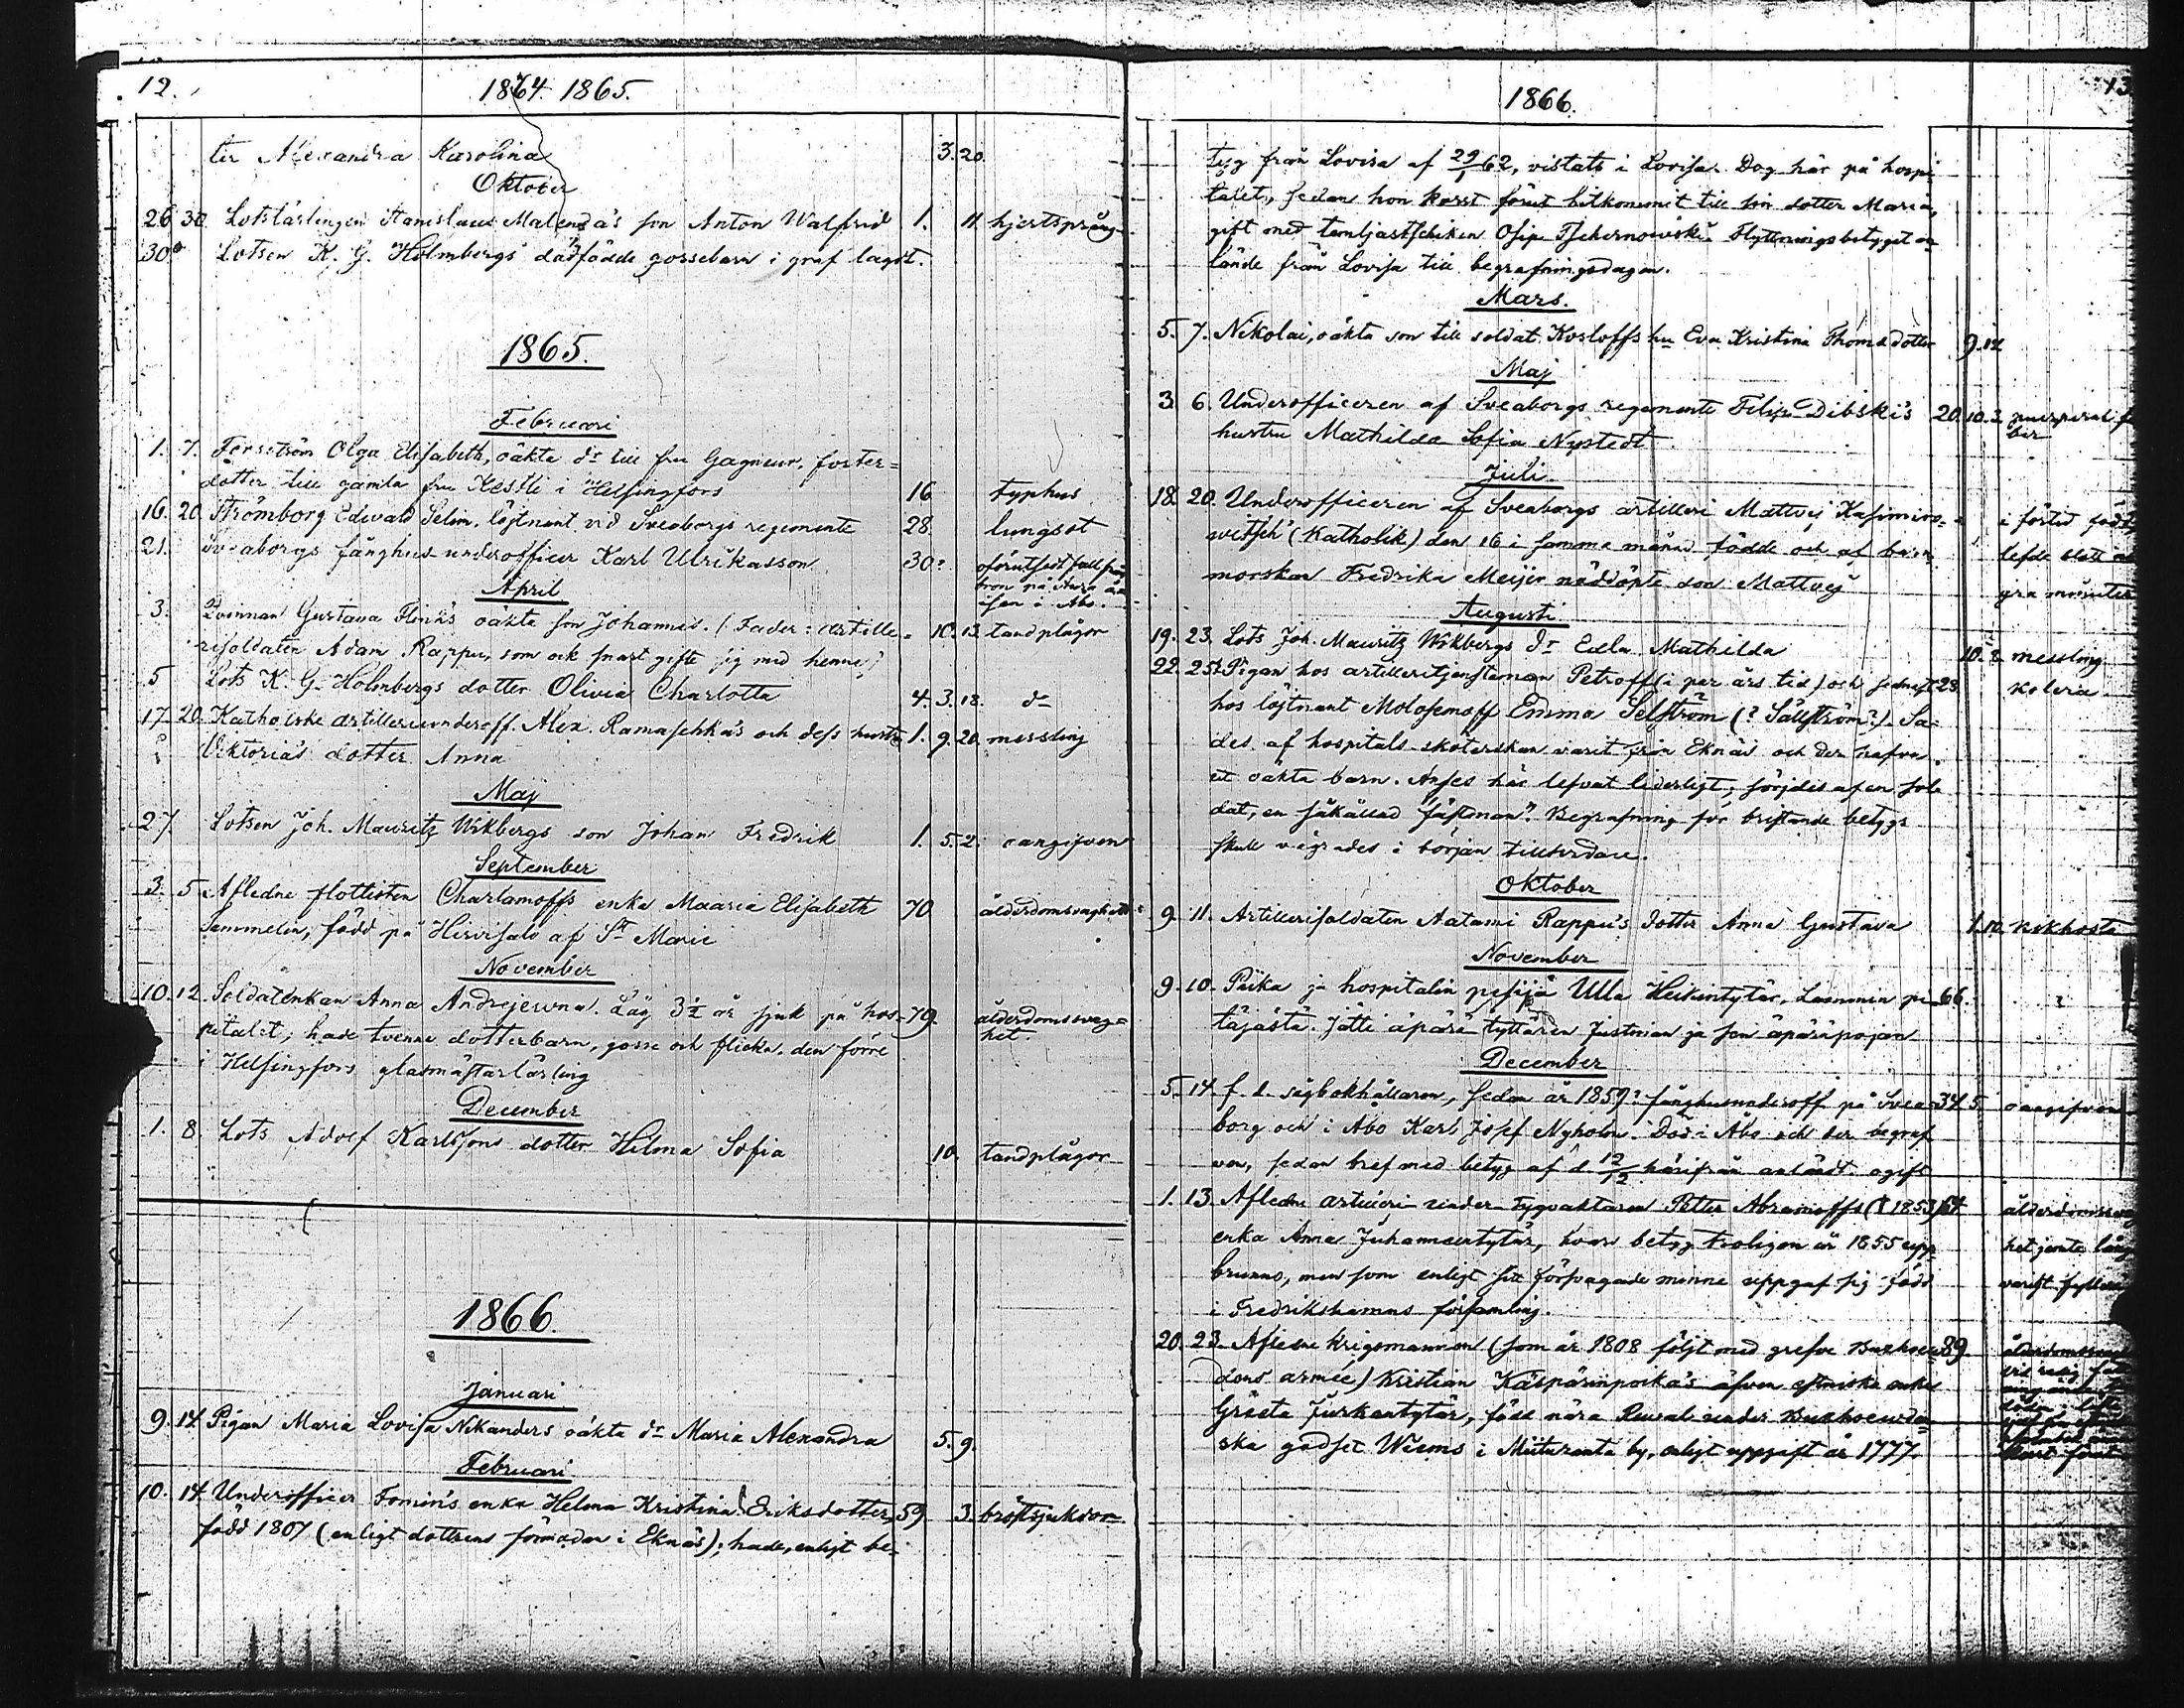 12.
1864. 1865.
ter Alexandra Karolina 3. 20.
Oktober
26 30 Lotslärlingen Stanislaus son Anton Walfrid 1. 11 hjertsprång
30 Lotsen K. G. Holmbergs dödfödde gossebarn i graf lagdt.
1865.
Februari
1. 7. Forsström Olga Elisabeth, oäkta dr till fru Gagneur, foster=
dotter till gamla fru Kestli i Helsingfors 16 typhus
16. 20. Strömborg Edvald Selim, löjtnant vid Sveaborgs regemente 28. lungsot
21. Sveaborgs fånghus underofficer Karl Ulrikasson 30? oförutsedt fall från
bron på Aura å
isen i Åbo.
April
3. Qvinnan Gustava Flinks oäkta son Johannes. (Fader: artille= 10. 13. tandplågor
risoldaten Adam Rappu, som ock snart gifte sig med henne)
5 Lots K. G. Holmbergs dotter Olivia Charlotta 4. 3. 18. do
17. 20. Katholske artilleriunderoff. Alex. Ramaschka's och dess hustru 1. 9. 20. messling
Viktoria's dotter Anna
Maj
27. Lotsen Joh. Mauritz Wikbergs son Johan Fredrik 1. 5. 2. oangifven
September
3. 5 Aflidne flottisten Charlamoffs enka Maaria Elisabeth 70 ålderdomsvaghet
Sammelin, född på Hirvisalo af St Marie
November
10. 12. Soldatenkan Anna Andrejewna. Låg 3½ år sjuk på hos= 79. ålderdomsvag=
pitalet; hade tvenne dotterbarn, gosse och flicka, den förre het.
i Helsingfors glasmästarlärling
December
1. 8. Lots Adolf Karlssons dotter Hilma Sofia 10. tandplågor
1866.
Januari
9. 14. Pigan Maria Lovisa Nikanders oäkta dr Maria Alexandra 5. 9.
Februari
10. 14. Underofficer Fomin's enka Helena Kristina Eriksdotter, 59. 3. bröstsjukdom
född 1807 (enligt dottrens förmodan i Eknäs); hade, enligt be=
1866.
13
tyg från Lovisa af 29/1 62, vistats i Lovisa. Dog här på hospi
talet, sedan hon kort förut hitkommit till sin dotter Maria,
gift med Osip Tschernowski. Flyttningsbetyget an
lände från Lovisa till begrafningsdagen.
Mars.
5. 7. Nikolai, oäkta son till soldat Kosloffs hu Eva Kristina Thomsdotter 9. 12
Maj
3. 6. Underofficeren af Sveaborgs regemente Filip Dibski's 20. 10. 2. puerperal fe
hustru Mathilda Sofia Nystedt. ber
Juli
18. 20. Underofficeren af Sveaborgs artilleri Mattvej Kasimiro= i förtid född
witsch (Katholik) den 16 i samma månad födde och af barn lefde blott
morskan Fredrika Meijer nöddöpte son Mattvej minuter
Augusti
19. 23. Lots Joh. Mauritz Wikbergs dr Edla Mathilda 10. 2 messling
22. 25. Pigan hos artilleritjensteman Petroff (i par års tid) och sednast 28. kolera
hos löjtnant Molosemoff Emma Selström (? Sällström?). Sa=
des af hospitals sköterskan varit från Eknäs och der hafva
ett oäkta barn. Anses här lefvat liderligt; sörjdes af en sol
dat, en såkallad "fästman". Begrafning för bristande betygs
skull vägrades i början tillsvidare.
Oktober
9. 11. Artillerisoldaten Aatami Rappu's dotter Anna Gustava 1. 10. kikhosta
November
9. 10. Piika ja hospitalin pesijä Ulla Heikintytär, Lammin pi= 66. ?
täjästä. Jätti äpärä tyttären Justinan ja sen äpäräpojan
December
5. 14. f. d. sågbokhållaren, sedan år 1859? fånghusunderoff på Svea= 34. 5. oangifven
borg och i Åbo Karl Josef Nyholm. Död i Åbo och der begraf
ven, sedan bref med betyg af d 12/12 härifrån anländt. ogift
1. 13. Aflidne artilleri under-tygvaktaren Petter Abramoffs († 1853) 64 ålderdomssvag
enka Anna Juhanantytär, hvars betyg troligen år 1855 upp het jemte lång
brunno, men som enligt sitt försvagade minne uppgaf sig född varigt
i Fredrikshamns församling.
20. 23. Aflidne krigsmannen (som år 1808 följt med grefve Buxhoew= 89. ålderdomssvag
dens armée) Kristian Käspärinpoika's äfven estniska enka
Greeta Jürkantytär, född nära Reval under Buxhoewden=
ska godset Wiems i by, enligt uppgift år 1777. kort förut